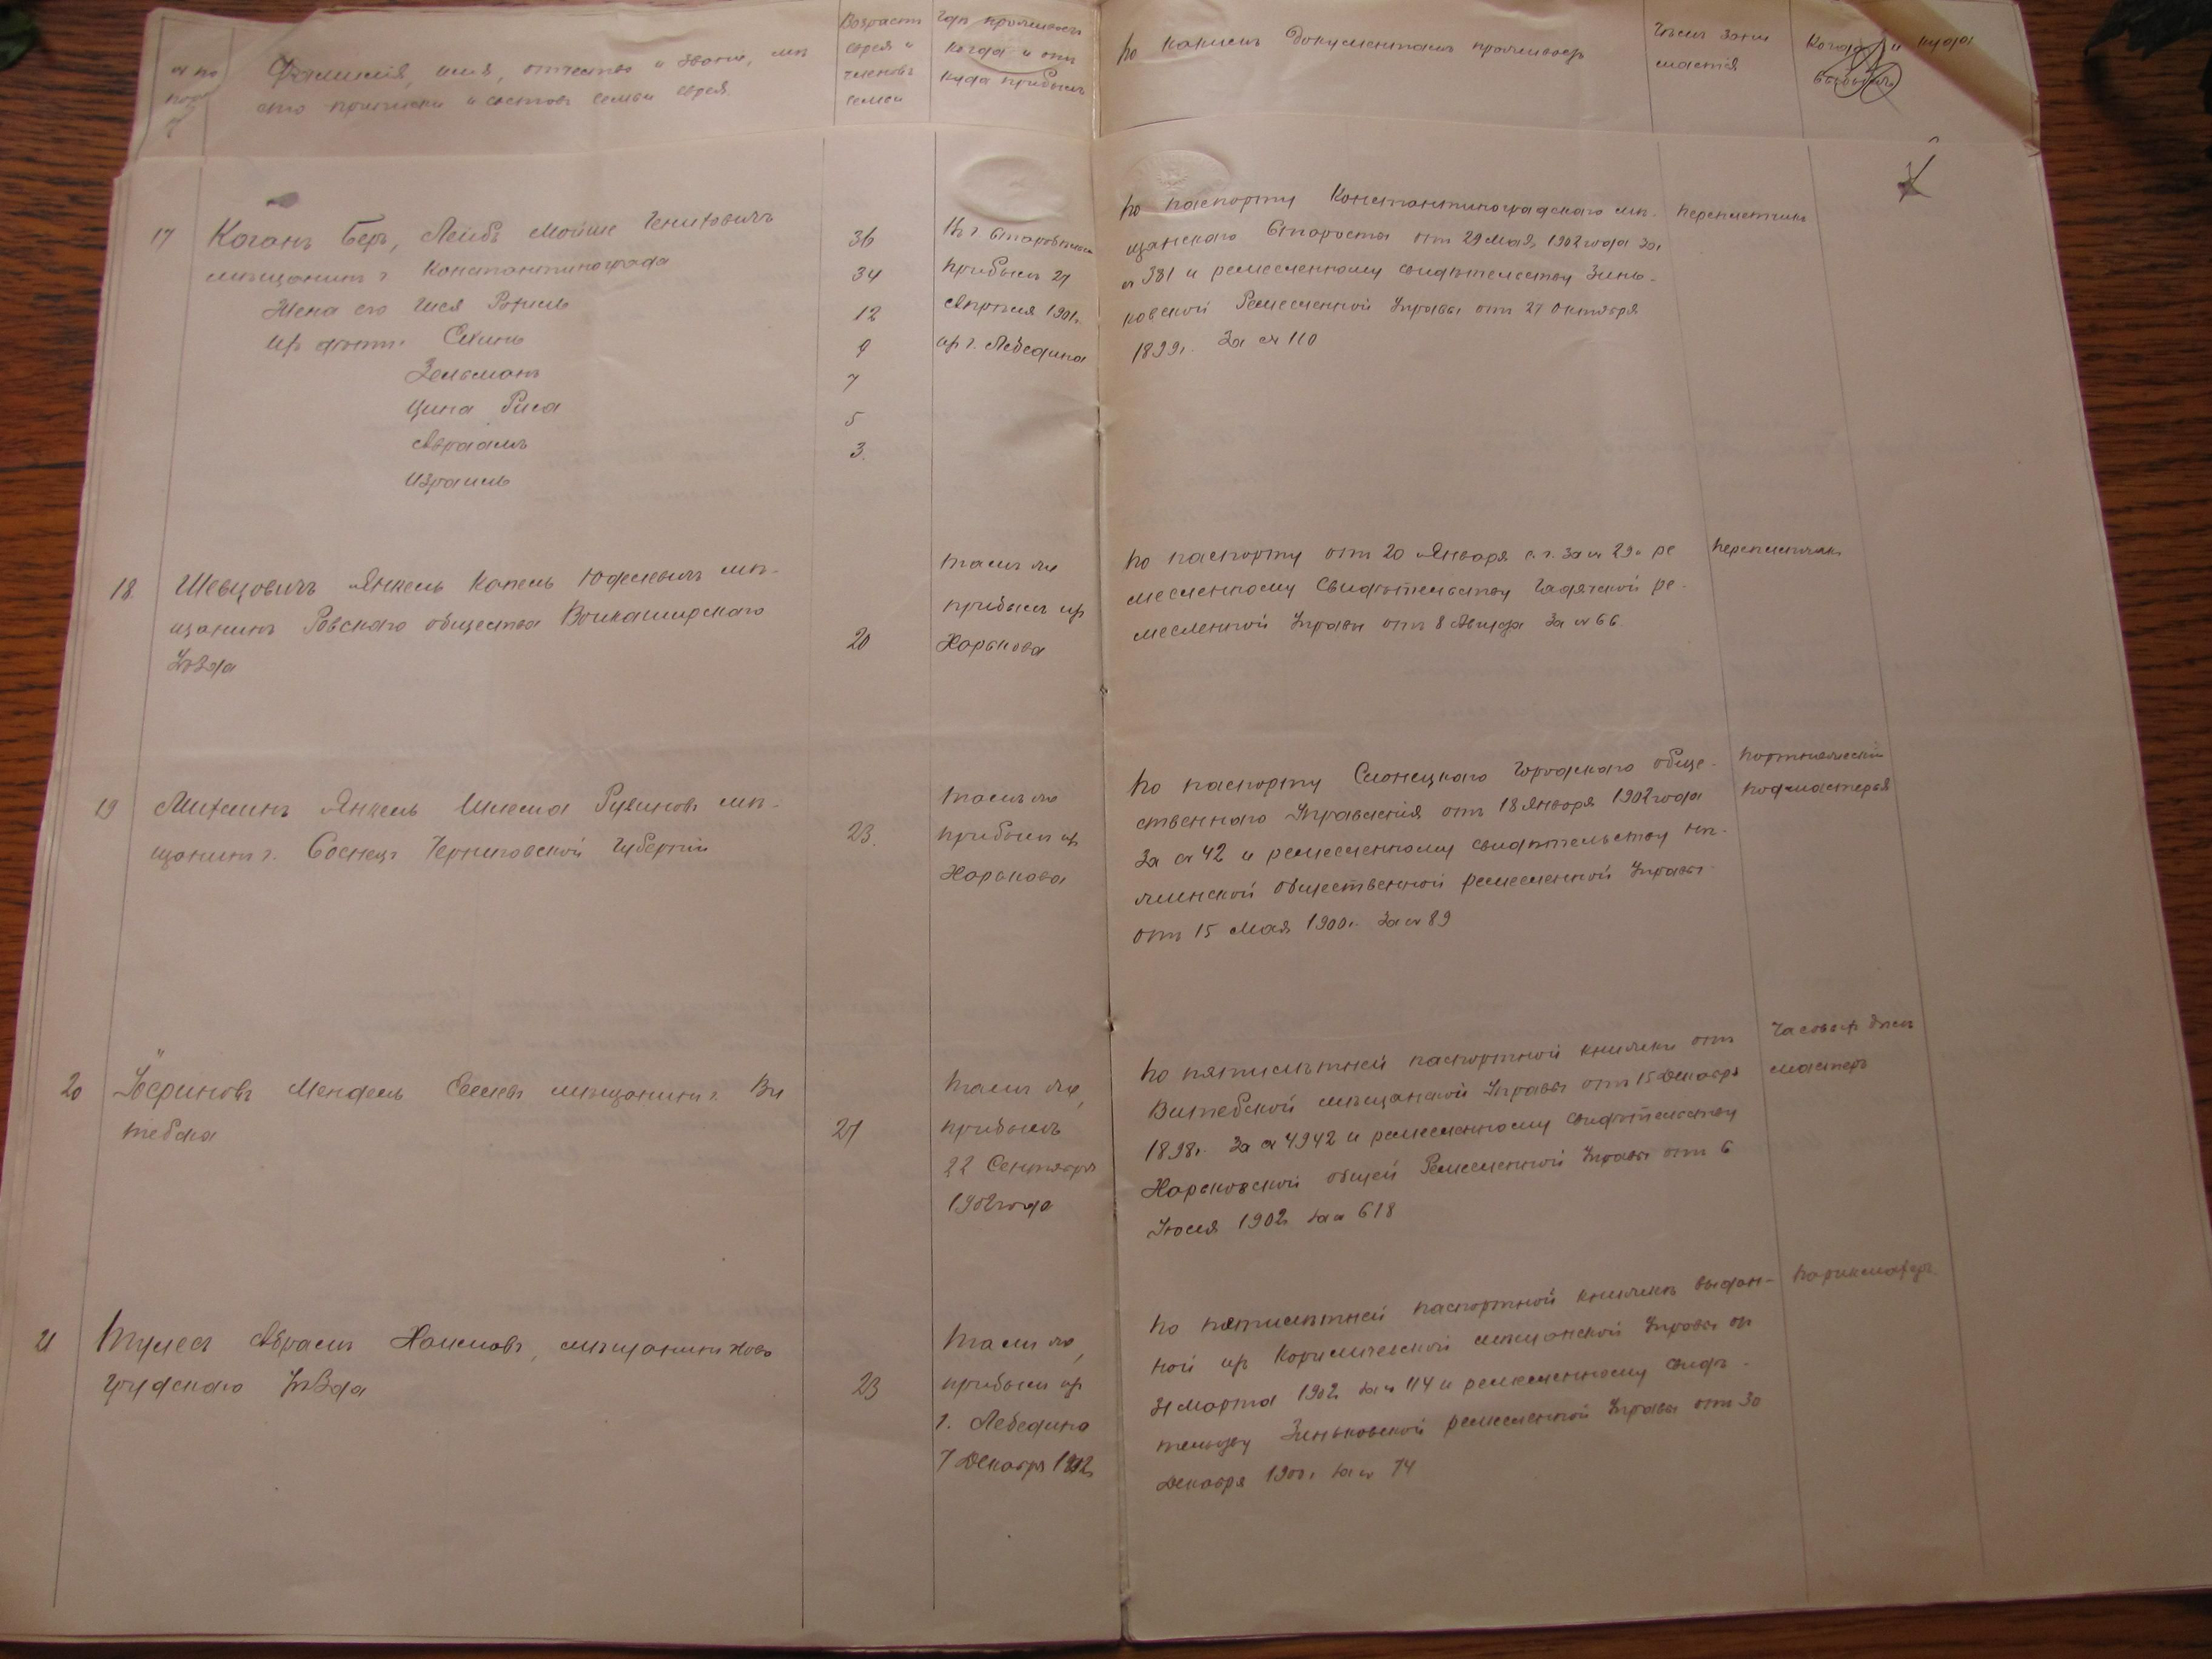 Фамилія, имя, отчество и званіе, мѣ-
сто приписки и составъ семьи еврея.
Возрастъ
еврея и
членовъ
семьи
Гдѣ проживаетъ
Когда и отъ
куда прибылъ
По какимъ документамъ проживаетъ
Чѣмъ зани
мается
Когда и куда
выбылъ
17
Коганъ Беръ, Лейбъ Мойше
мѣщанинъ г. Константинограда
Жена его
изъ дѣти:
Зельманъ
Ципа Риса
Авраамъ
Израиль
36
34
12
9
7
5
3.
прибылъ 21
Апрѣля 1901г.
изъ г. Лебедина
По паспорту Константиноградскаго мѣ-
щанскаго Старосты отъ 29 Мая 1902 года за
№ 381 и ремесленному свидѣтельству Зинь-
ковской Ремесленной Управы отъ 27 Октября
1899г. За № 110
Переплетчикъ
18.
Шевцовичъ Янкель Копель Юделевичъ мѣ-
щанинъ Ровскаго общества
Уѣзда
20
Тамъ же
прибылъ изъ
Харькова
По паспорту отъ 20 Января с. г. за № 29 и ре
месленному Свидѣтельству Гадячской ре-
месленной Управы отъ 8 за № 66
Переплетчикъ
19
Янкель Рувиновъ мѣ-
щанинъ г. Сосницъ Черниговской Губерніи
23.
Тамъ же
прибылъ изъ
Харькова
По паспорту Городскаго обще-
ственнаго Управленія отъ 18 Января 1902 года
За № 42 и ремесленному свидѣтельству Нѣ-
жинской общественной ремесленной Управы
отъ 15 Мая 1900г. За № 89
Портняжескій
подмастерья
20
Мендель мѣщанинъ г. Ви
тебска
21
Тамъ же,
прибылъ
22 Сентября
1902 года
По пятилѣтней паспортной книжки отъ
Витебской мѣщанской Управы отъ 15 Декабря
1898г. За № 4942 и ремесленному свидѣтельству
Харьковской общей Ремесленной Управы отъ 6
Іюля 1902 за № 618
Часовыхъ дѣлъ
мастеръ
21
Абрамъ Хаимовъ, мѣщанинъ Ново
грудскаго Уѣзда
23
Тамъ же,
прибылъ изъ
г. Лебедина
7 Декабря 1902
По пятилѣтней паспортной книжкѣ выдан-
ной изъ Кореличевской мѣщанской Управы отъ
31 Марта 1902 за № 114 и ремесленному свидѣ-
тельству Зиньковской ремесленной Управы отъ 30
Декабря 1900г. за № 74
Парикмахеръ